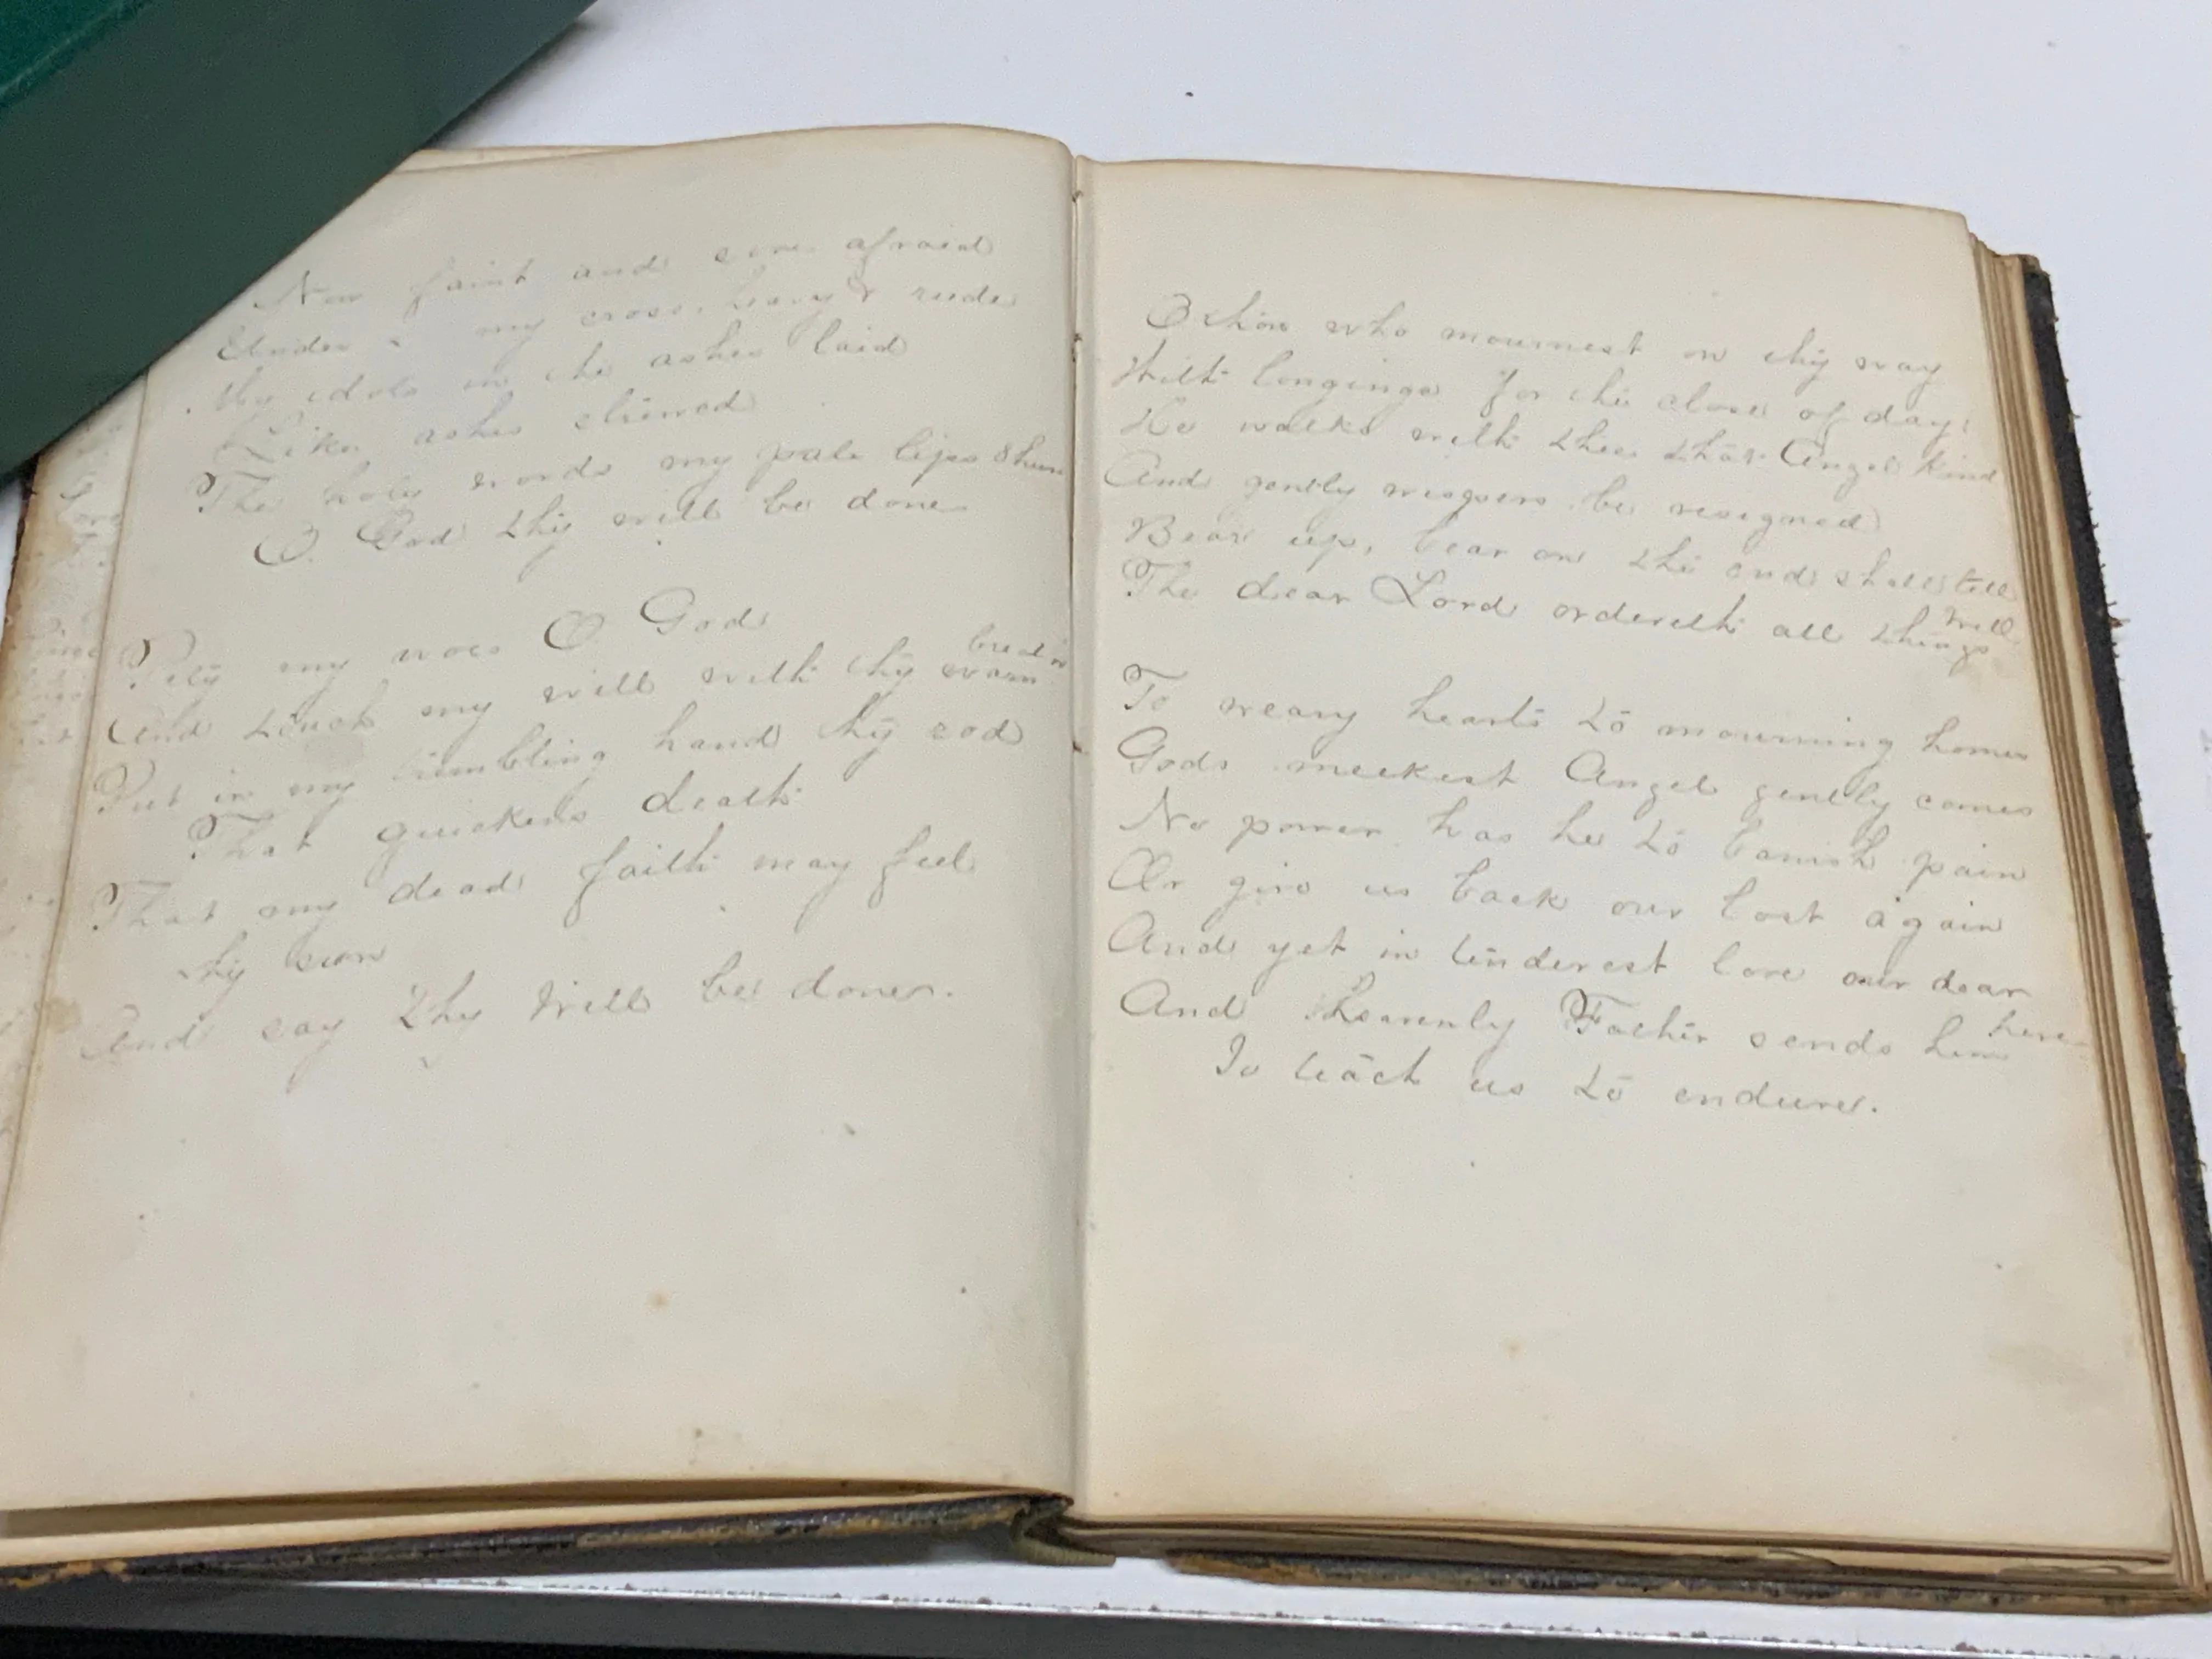 Now faint and sore afraid
Under my cross, heavy & rude
My idols in the ashes laid
Like ashes strewed
The holy words my pale lips shun
O. God thy will be done
Pity my woes O. God
And touch my will with thy warm breath
Put in my trembling hand thy rod
That quickens death
That my dead faith may feel
thy sun
And say Thy Will be done.
O thou who mournest on thy way
With longings for the close of day;
He walks with thee that Angel kind
And gently wispers be resigned
Bear up, bear on the end shall tell
The dear Lord ordereth all things well
To weary hearts to mourning homes
Gods meekest Angel gently comes
No power has he to banish pain
Or give us back our lost again
And yet in tenderest love our dear
And Heavenly Father sends him here
To teach us to endure.